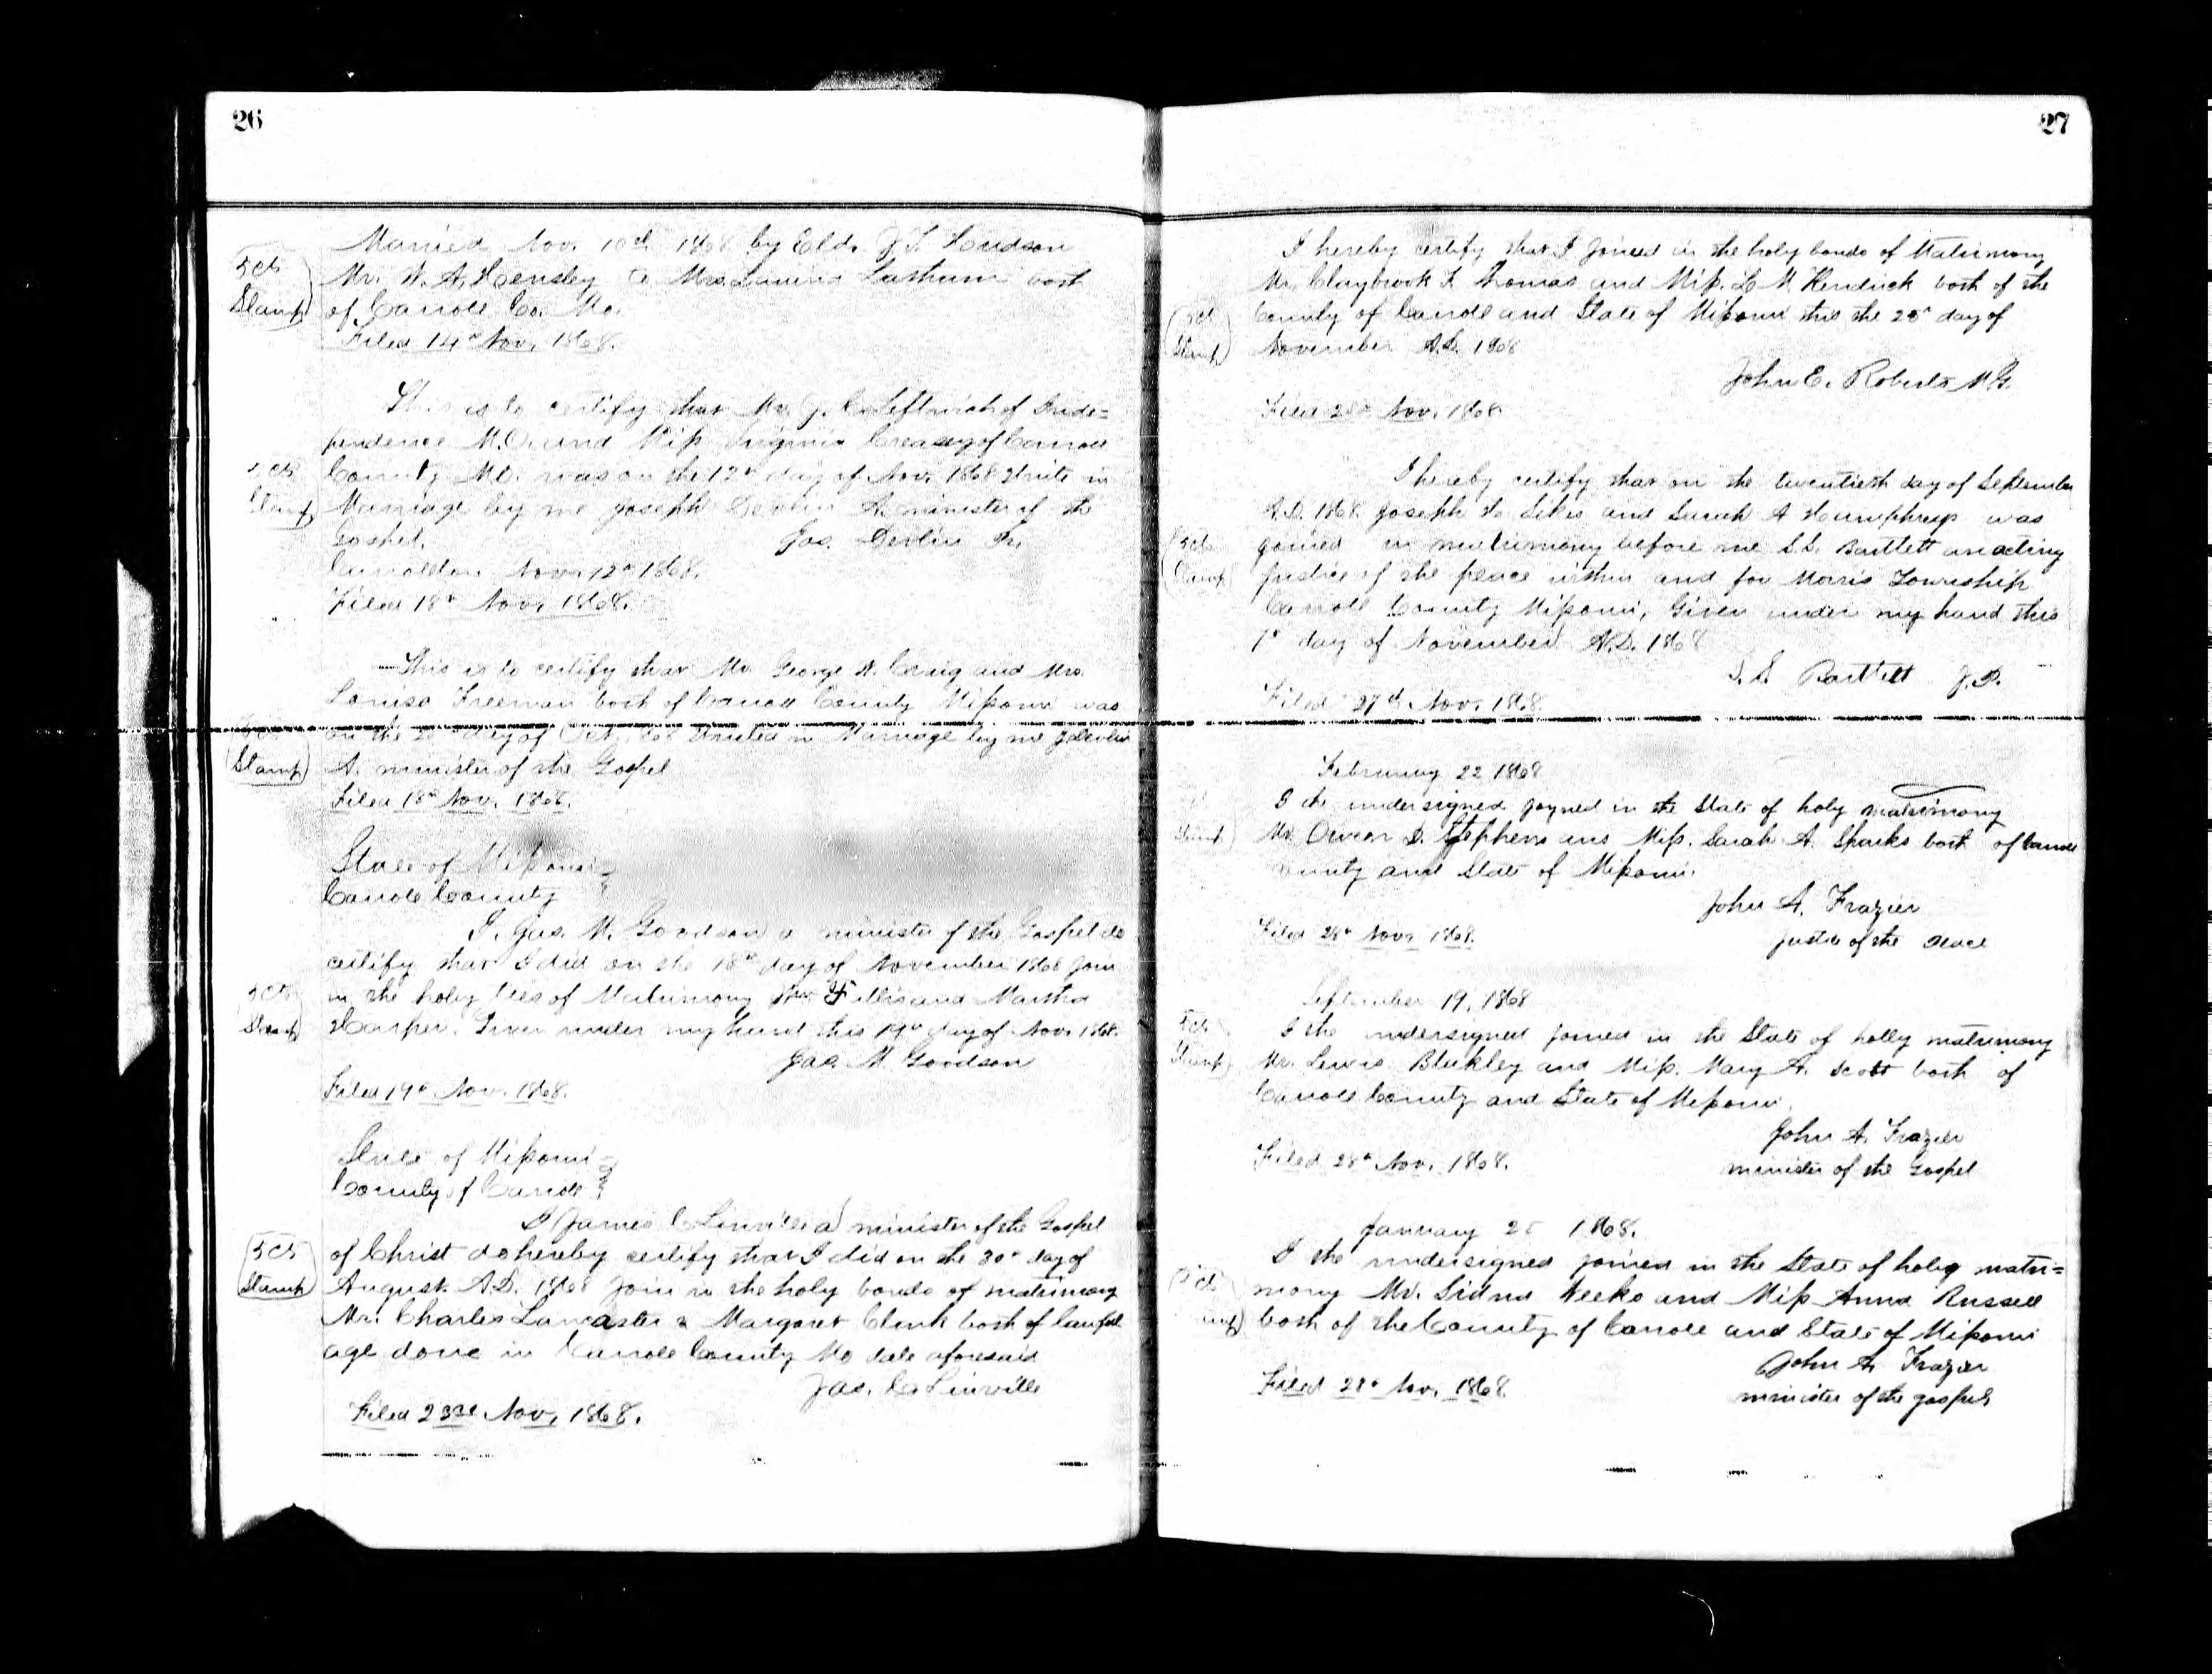 26
Married Nov. 10th 1868 by Eld. J. T. Houdson
5 cts
Mr. W. A. Hensley to Mrs. Laura Lathum both
Stamp
of Carroll Co. Mo.
Filed 14th Nov. 1868.
This is to certify that Mr. J. Leftwich of Inde=
pendence M.O. and Miss Virginia Creasey of Carroll
cts
County MO. was on the 12th day of Nov. 1868 Unite in
Stamp
Marriage by me Joseph Devlin A. minister of the
Gospel.
Jos. Devlin
Carrollton Nov. 12th 1868.
Filed 18th Nov. 1868.
This is to certify that Mr. George W. Craig and Mrs.
Louisa Freeman both of Carroll County Missouri was
on the day of Oct. United in Marriage by me J Devlin
Stamp
A. minister of the Gospel
Filed 18th Nov. 1868.
State of Missouri
Carroll County
I, Jas. M. Goodson a minister of the Gospel do
certify that I did on the 18th day of November 1868 join
5 cts
in the holy ties of Matrimony and Martha
Stamp
Harper. Given under my hand this 19th day of Nov. 1868.
Jas. M. Goodson
Filed 19th Nov. 1868.
State of Missouri
County of Carroll
I James C Linville a minister of the Gospel
5 cts
of Christ do hereby certify that I did on the 30th day of
Stamp
August A.D. 1868 join in the holy bonds of matrimony
Mr. Charles Lancaster & Margaret Clark both of lawful
age done in Carroll County Mo date aforesaid
Jas. C. Linville
Filed 23rd Nov. 1868.
27
I hereby certify that I joined in the holy bonds of Matrimony
Mr. Claybrook F. Thomas and Miss. L M. Kendrick both of the
5 ct
County of Carroll and State of Missouri this the 25th day of
Stamp
November A.D. 1868
John E. Roberts M.G.
Filed Nov. 1868
I hereby certify that on the twentieth day of September
A.D. 1868 Joseph H. Sikes and Sarah A Humphreys was
5 cts
joined in matrimony before me S.S. Bartlett an acting
Stamp
Justice of the peace within and for Morris Township
Carroll County Missouri, Given under my hand this
1st day of November A.D. 1868
S. S. Bartlett J.P.
Filed 27th Nov. 1868.
February 22 1868
I the undersigned joyned in the State of holy matrimony
Stamp
Mr. Owen D. Stephens and Miss. Sarah A. Sparks both of Carroll
County and State of Missouri.
John A. Frazier
Filed 28th Nov. 1868.
Justice of the Peace
September 19, 1868
5 cts
I the undersigned joined in the State of holly matrimony
Stamp
Mr. Lewis Blakley and Miss. Mary A. Scott both of
Carroll County and State of Missouri.
John A. Frazier
Filed 28th Nov. 1868.
minister of the Gospel
January 25 1868.
I the undersigned joined in the State of holy matri=
5 cts
mony Mr. Sidna Weeks and Miss Anna Russell
Stamp
both of the County of Carroll and State of Missouri
John A. Frazier
Filed 28th Nov. 1868.
minister of the gospel